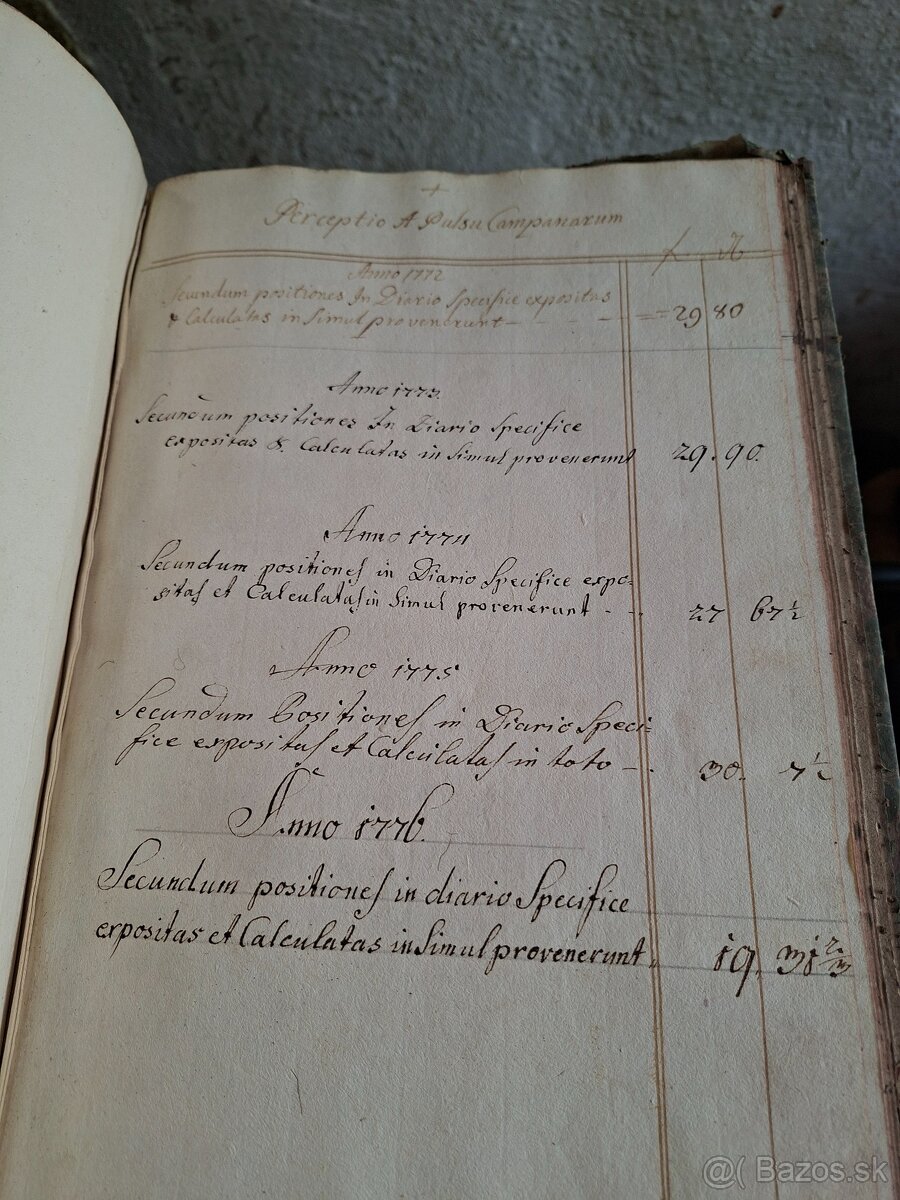 +
Perceptio A Pulsu Campanarum
f. ₰
Anno 1772
Secundum positiones In Diario Specifice expositas
& Calculatas in Simul provenerunt - - - - - == 29 80
Anno 1773.
Secundum positiones In Diario Specifice
expositas &. Calculatas in Simul provenerunt 29. 90.
Anno 1774
Secundum positiones in Diario Specifice expo-
sitas et Calculatas in Simul provenerunt - - . 27 67 1/2
Anno 1775
Secundum Positiones in Diario Speci=
fice expositas et Calculatas in toto - . 30. 7 1/2
Anno 1776.
Secundum positiones in diario Specifice
expositas et Calculatas in Simul provenerunt „ 19. 31 2/3
@( Bazos.sk